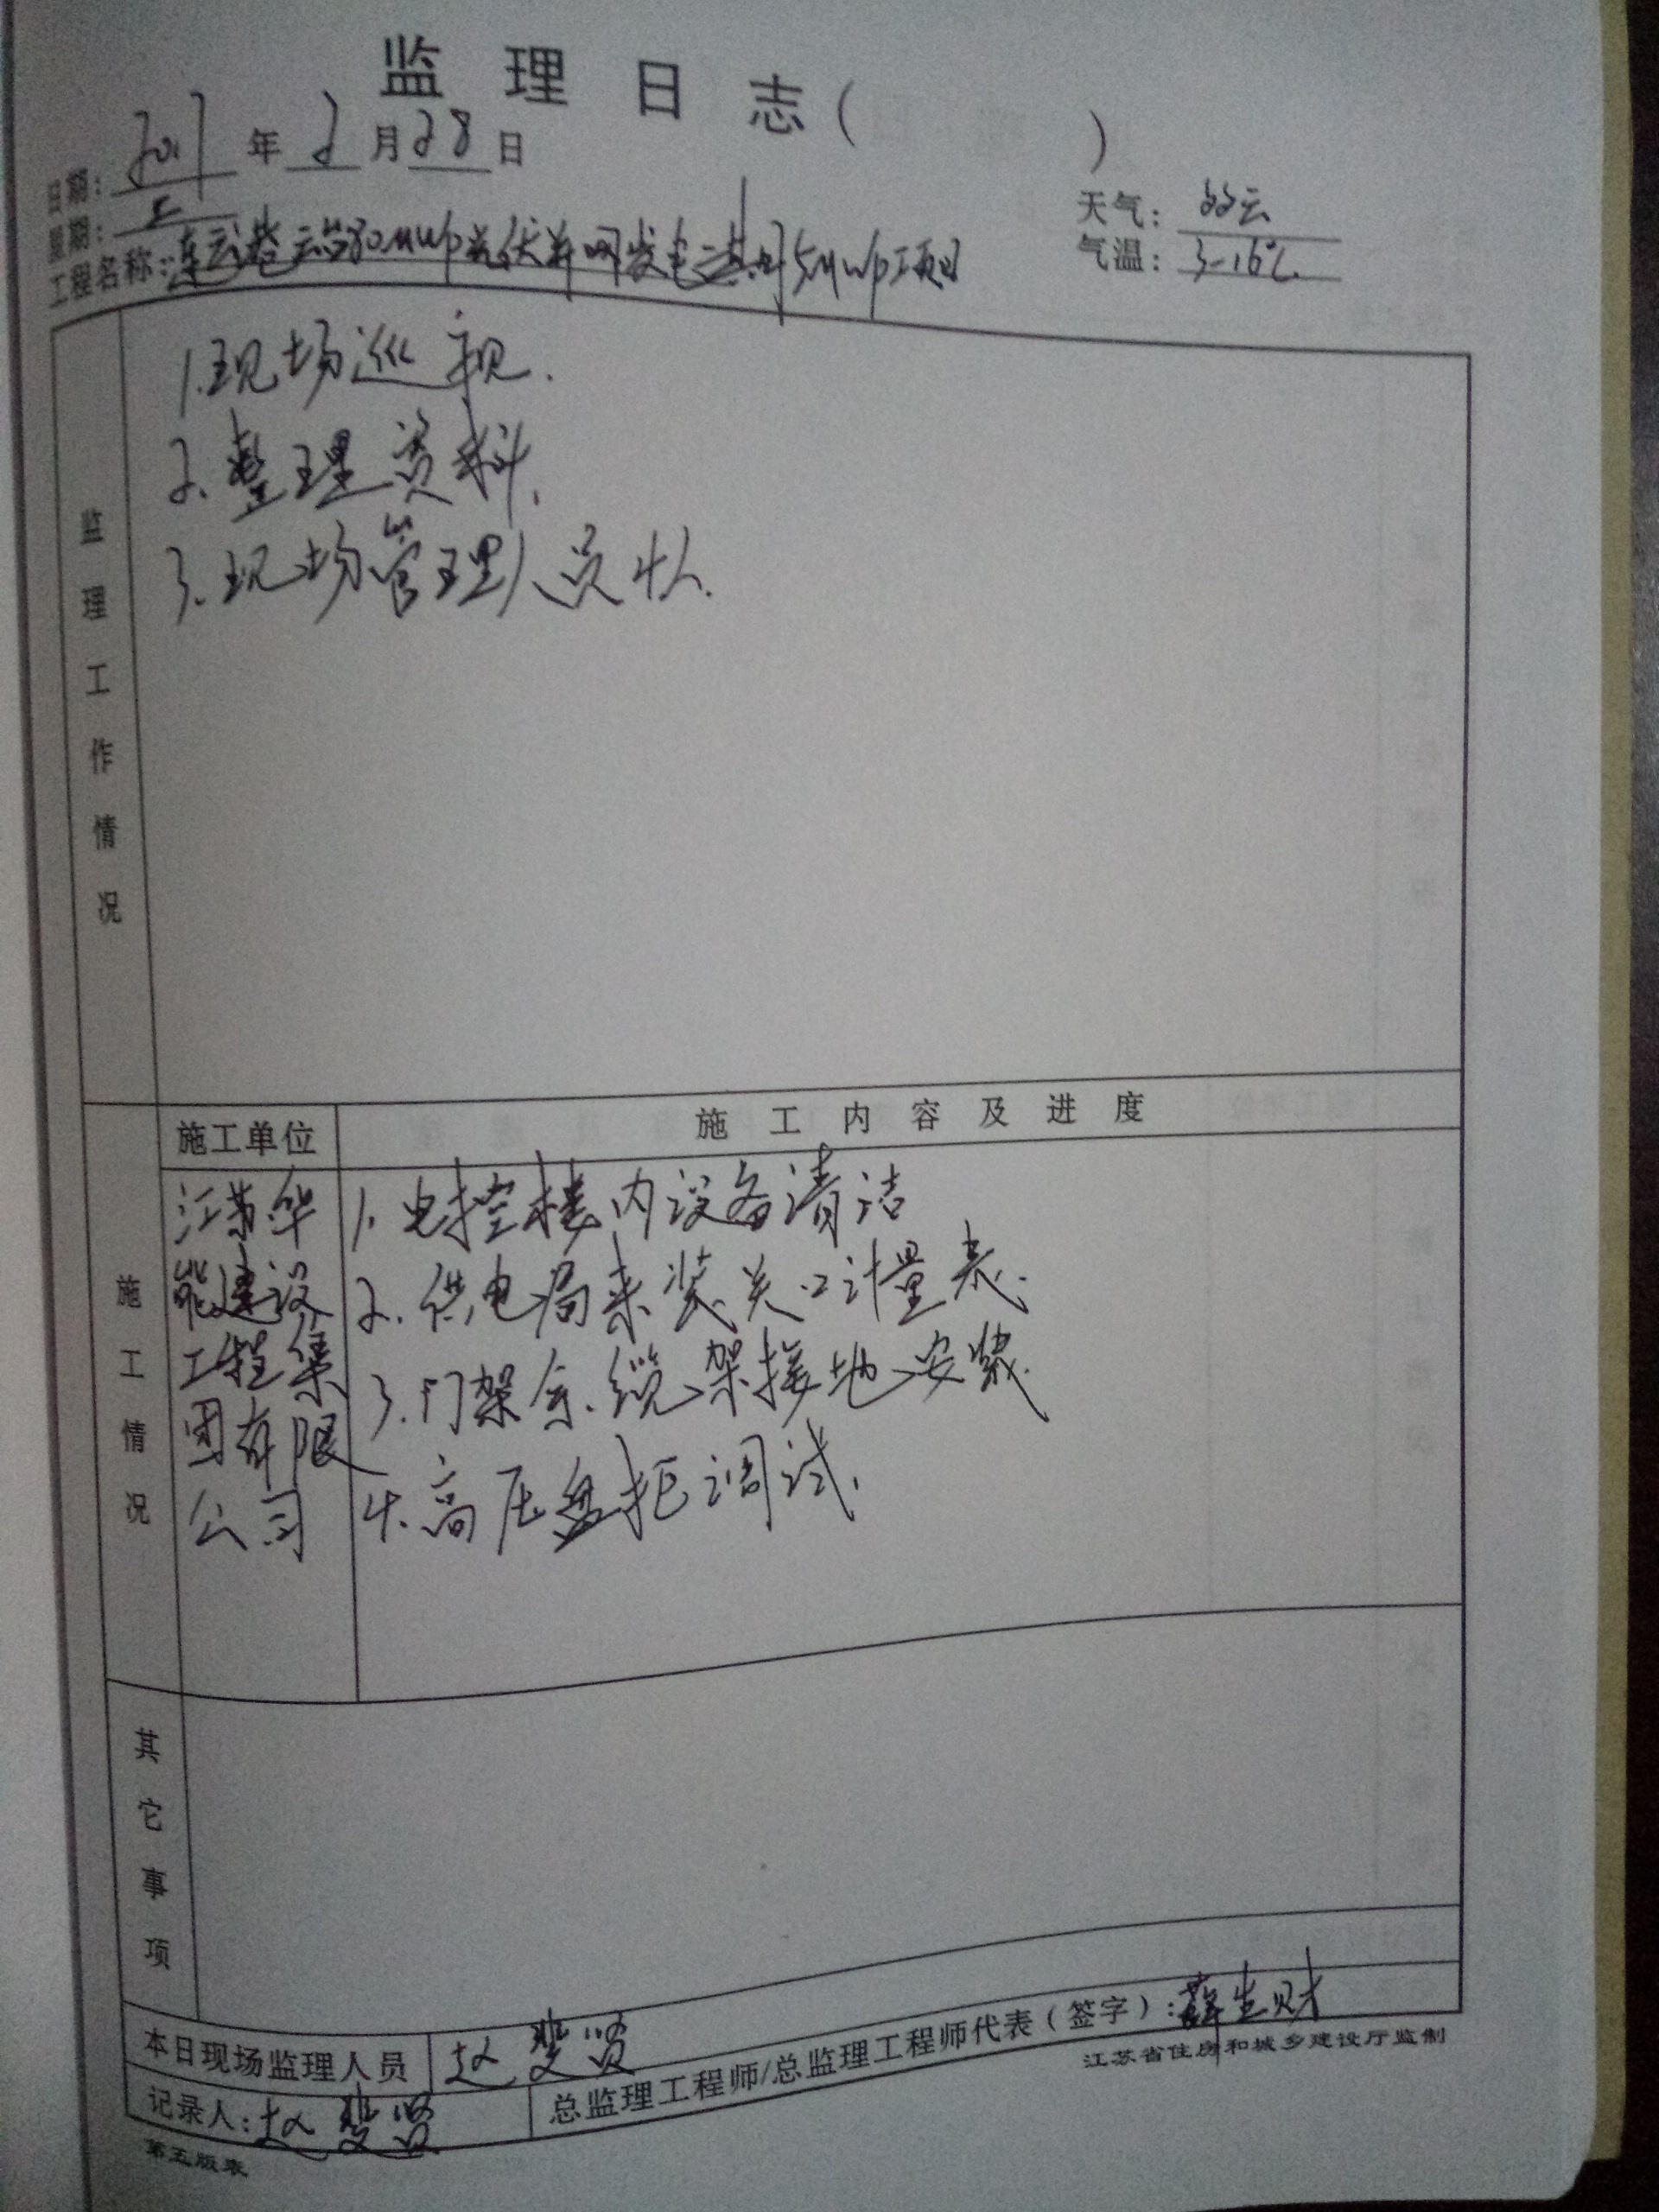 监理日志（ ）
日期：2017年2月28日
星期：二
天气：多云
工程名称：连云港云台30MWp光伏并网发电二期5MWp项目
气温：3-16℃
监理工作情况
1.现场巡视.
2.整理资料.
3.现场管理人员4人.
施工情况
施工单位
施工内容及进度
江苏华
能建设
工程集
团有限
公司
1.电控楼内设备清洁
2.供电局来装关口计量表.
3.门架余缆架接地安装.
4.高压盘柜调试.
其它事项
本日现场监理人员
赵斐贤
总监理工程师/总监理工程师代表（签字）：薛生财
记录人：赵斐贤
江苏省住房和城乡建设厅监制
第五版表